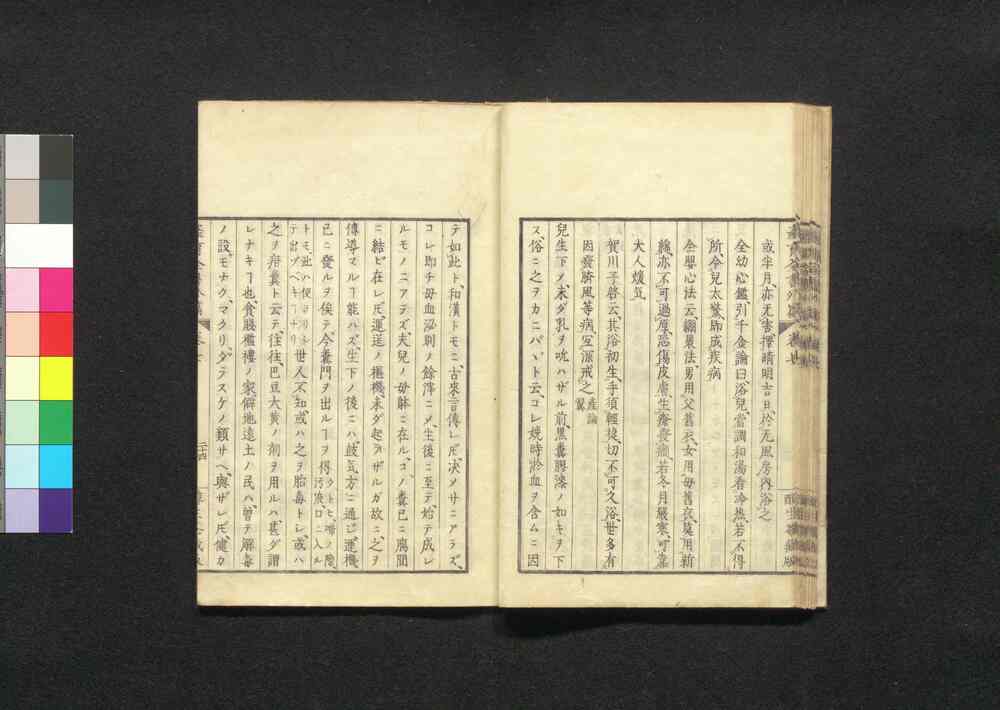 或半月、亦无害、擇晴明吉日、於无風房内浴之
全幼心鑑引千金論曰、浴兒當調和湯看冷熱、若不得
所令兒太驚助成疾病
全嬰心法云、繃裹法、男用父舊衣、女用母舊衣、莫用新
綿亦不可過厚、恐傷皮膚、生瘡發癎、若冬月嚴寒、可靠
大人煖気
賀川子啓云、其浴初生、手須輕捷、切不可久浴、世多有
因瘈臍風等病、宜深戒之 産論翼
兒生下ノ未ダ乳ヲ吮ハザル前、黒糞膠漆ノ如キヲ下
ス、俗ニ之ヲカニバヾト云、コレ娩時瘀血ヲ含ムニ因
テ如此ト、和漢トモニ古來言傳レ𪜈、决メサニアラズ、
コレ即チ母血泌別ノ餘滓ニメ、生後ニ至テ始テ成レ
ルモノニアラズ、夫兒ノ母躰ニ在ル、コノ糞已ニ腐閒
ニ結ビ在レ𪜈、運送ノ樞機、未ダ起ラザルガ故ニ、之ヲ
傳導スルヿ能ハズ、生下ノ後ニハ、鼓気方ニ通ジ、運機
已ニ發ルヲ俟テ、今糞門ヲ出ルヿヲ得
トモ、此ハ便
テ出ヅベキヿナリ
世人不知、或ハ之ヲ胎毒トシ、或ハ
之ヲ疳糞ト云テ、往往巴豆大黄ノ剤ヲ用ルハ、甚ダ謂
レナキヿ也、貧賤襤褸ノ家、僻地遠土ノ民ハ、曽テ解毒
ノ設モナク、マクリ、ダラスケノ類サヘ、與ザレ𪜈、健カ